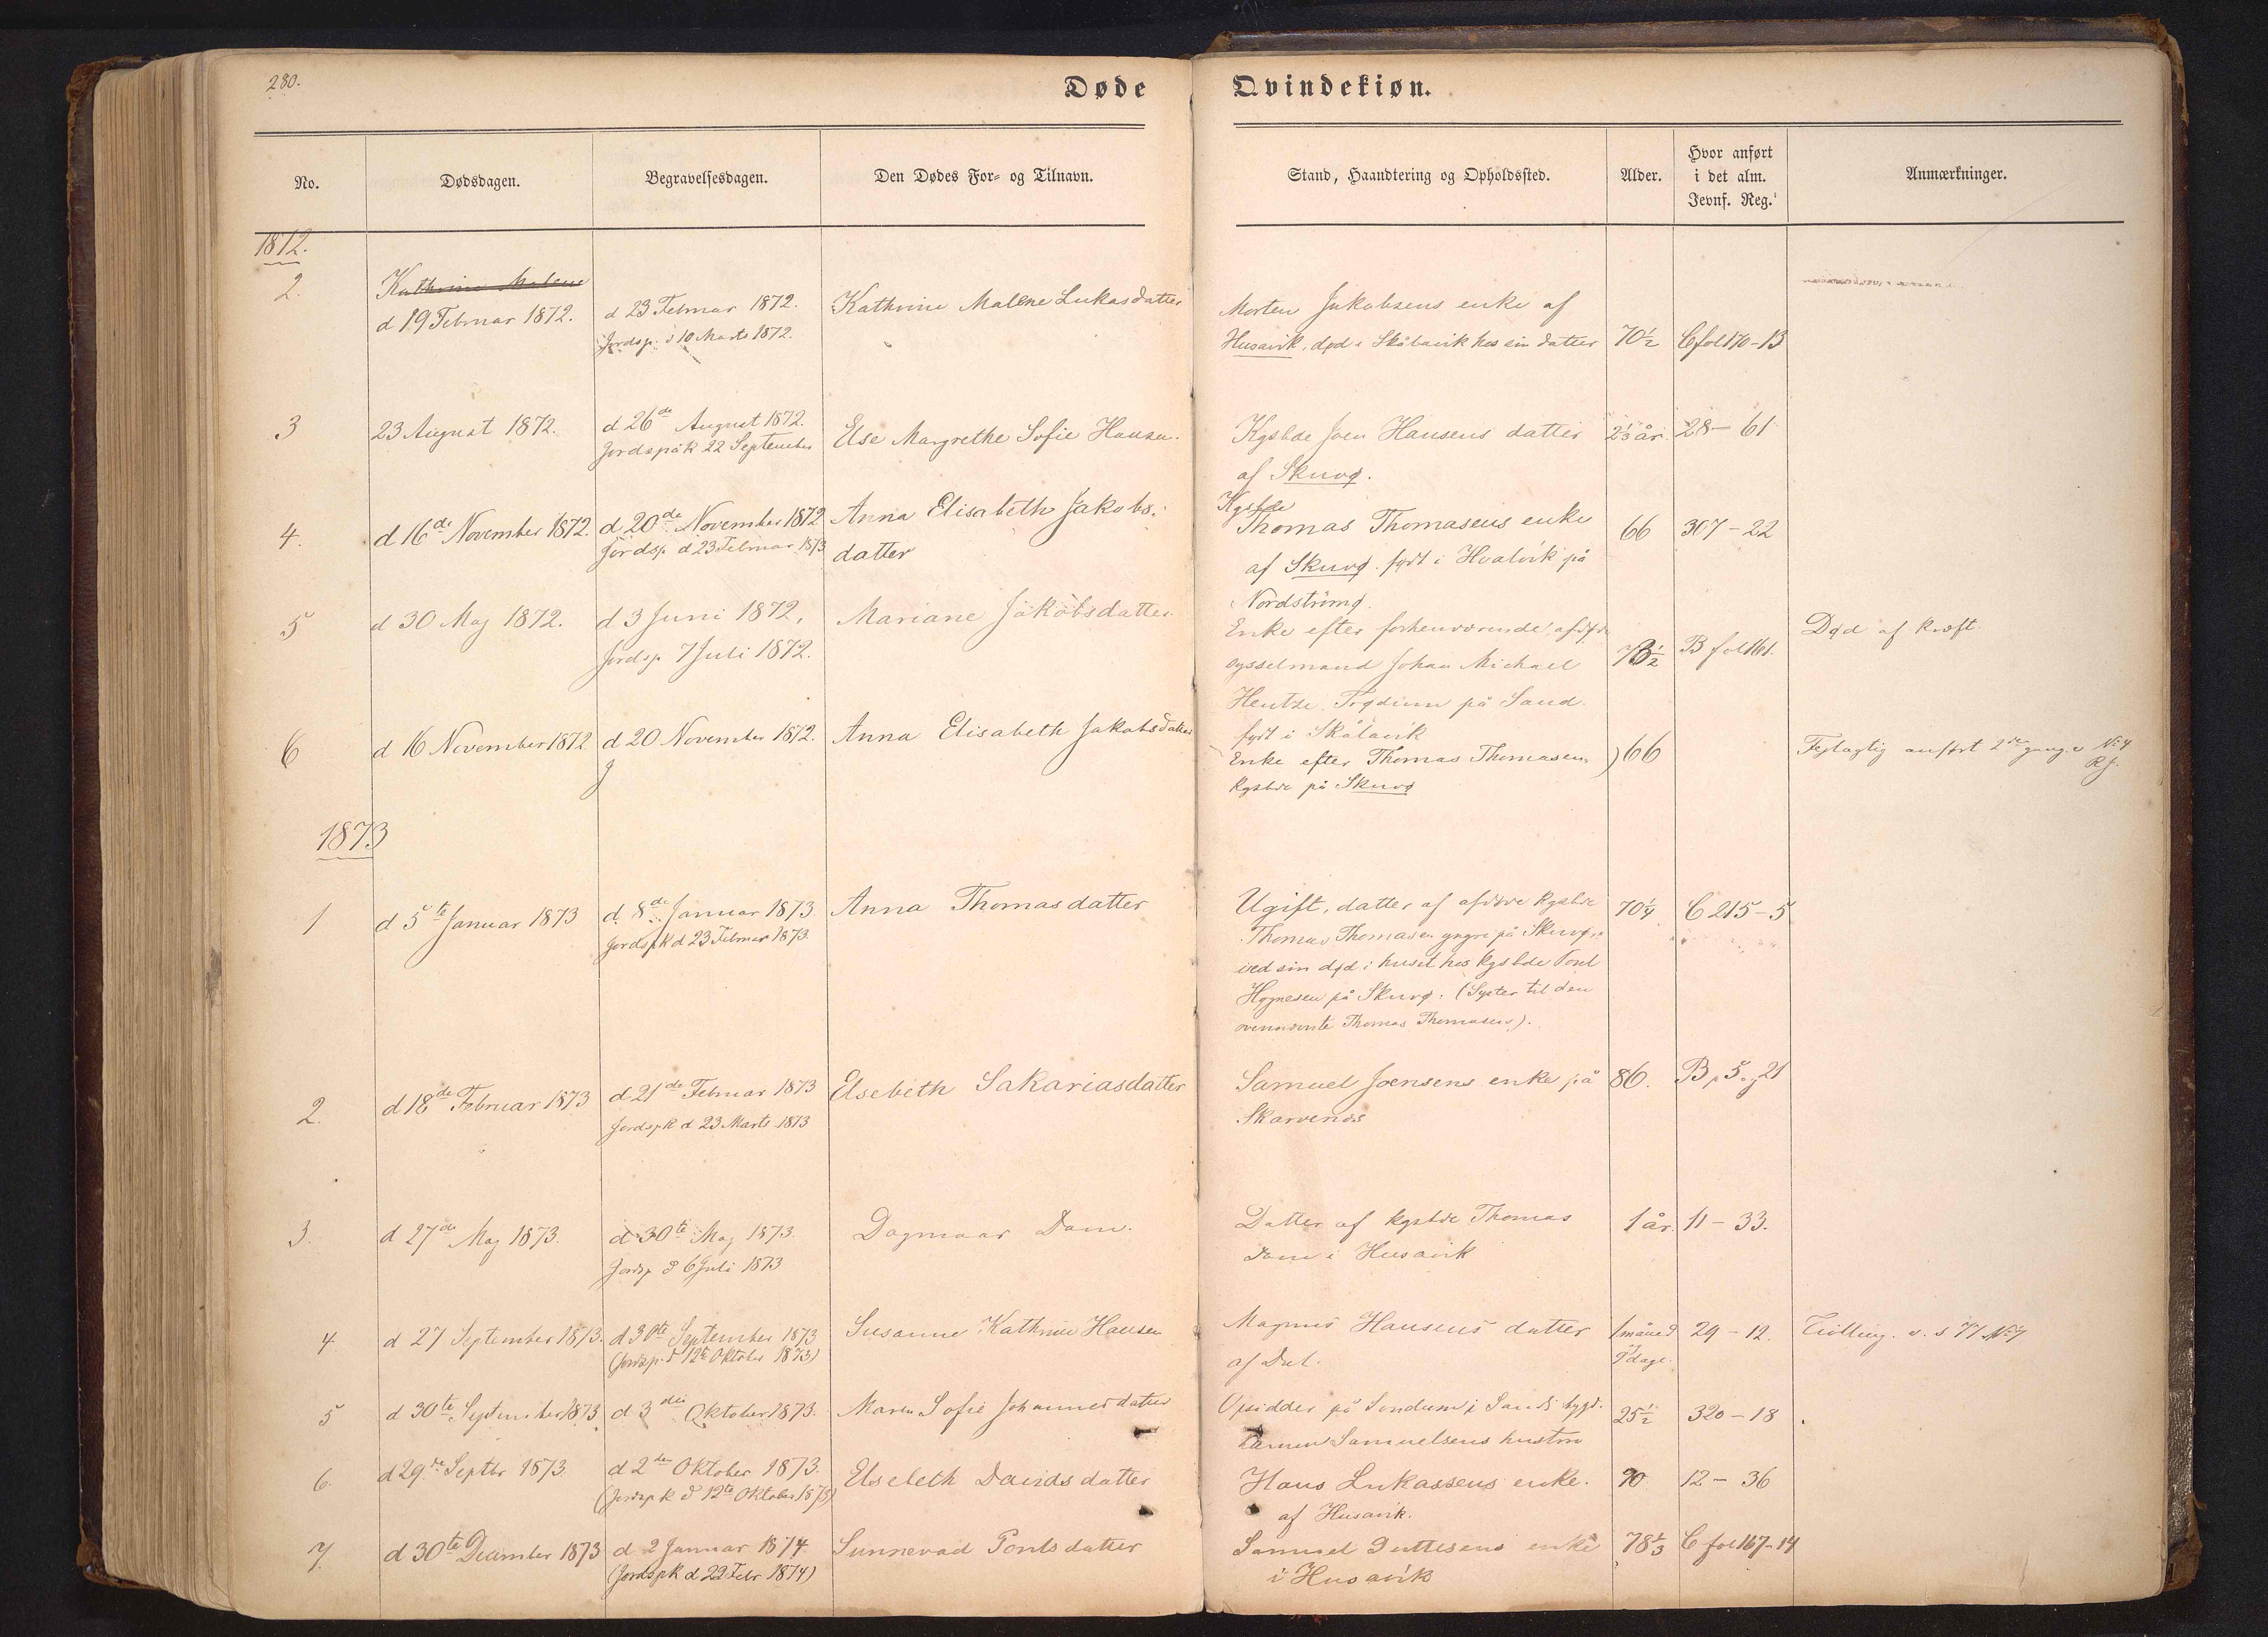 280.
Døde Qvindekiøn.
No. Dødsdagen. Begravelsesdagen. Den Dødes For- og Tilnavn. Stand, Haandtering og Opholdssted. Alder. Hvor anført i det alm. Jevnf. Reg. Anmærkninger.
1872.
2. Kathrine Malene
d 19 Februar 1872. d 23 Februar 1872. Kathrine Malene Lukasdatter Morten Jakobsens enke af
Jordsp. d 10 Marts 1872. Husavik, død i Skålavik hos sin datter 70½ C fol 170-13
3 23 August 1872. d 26de August 1872. Else Margrethe Sofie Hansen. Kgsbde Joen Hansens datter 2⅓ år. 28-61
Jordspåk 22 September
af Skuvø.
4. d 16de November 1872. d 20de November 1872 Anna Elisabeth Jakobs- Kgsbde
Thomas Thomasens enke 66 307-22
Jordsp. d 23 Februar 1873 datter
af Skuvø. født i Hvalvik på
Nordstrømø.
5 d 30 Maj 1872. d 3 Juni 1872, Mariane Jakobsdatter Enke efter forhenværende, afdøde
Jordsp 7 Juli 1872. sysselmand Johan Michael 78½ B fol 161. Død af kræft.
Hentze, på Sand.
født i Skålavik
6 d 16 November 1872 d 20 November 1872. Anna Elisabeth Jakobsdatter Enke efter Thomas Thomasen 66 Fejlagtig anført 2den gang. v No 4
J Kgsbde på Skuvø RJ.
1873
1 d 5te Januar 1873 d. 8de Januar 1873. Anna Thomasdatter Ugift, datter af afdøde Kgsbde 70¼ C 215-5
Jordspk d 23 Februar 1873. Thomas Thomasen yngre på Skuvø,
ved sin død i huset hos Kgsbde Poul
Høgnesen på Skuvø. (Syster til den
ovennævnte Thomas Thomasens).
2. d 18de Februar 1873 d 21de Februar 1873 Elsebeth Sakariasdatter Samuel Joensens enke på 86. B p 5 og 21
Jordspk d 23 Marts 1873 Skarvenæs
3. d 27de Maj 1873. d 30te Maj 1873. Dagmaar Dam. Datter af kgsbde Thomas 1 år. 11-33.
Jordsp d 6 Juli 1873 Dam i Husavik
4. d 27 September 1873. d 30te September 1873 Susanne Kathrine Hansen Magnus Hansens datter 1 måned 29-12. Tvilling. v. s 77 No 7
(Jordsp. d 12te Oktober 1873) af Dal. 9 dage.
5 d 30te September 1873 d 3die Oktober 1873. Maren Sofie Johannesdatter Opsidder på Sondum i Sands bygd. 25½ 320-18
Samuelsens hustru
6. d 29de Septbr 1873. d 2den Oktober 1873. Elsebeth Davidsdatter Hans Lukassens enke. 90 12-36
(Jordspk d 12te Oktober 1873) af Husavik.
7. d 30te December 1873 d 2 Januar 1874 Sunnevad Poulsdatter Samuel enke 78⅓ C fol 167-14
(Jordspk d 22 Febr 1874) i Husavik